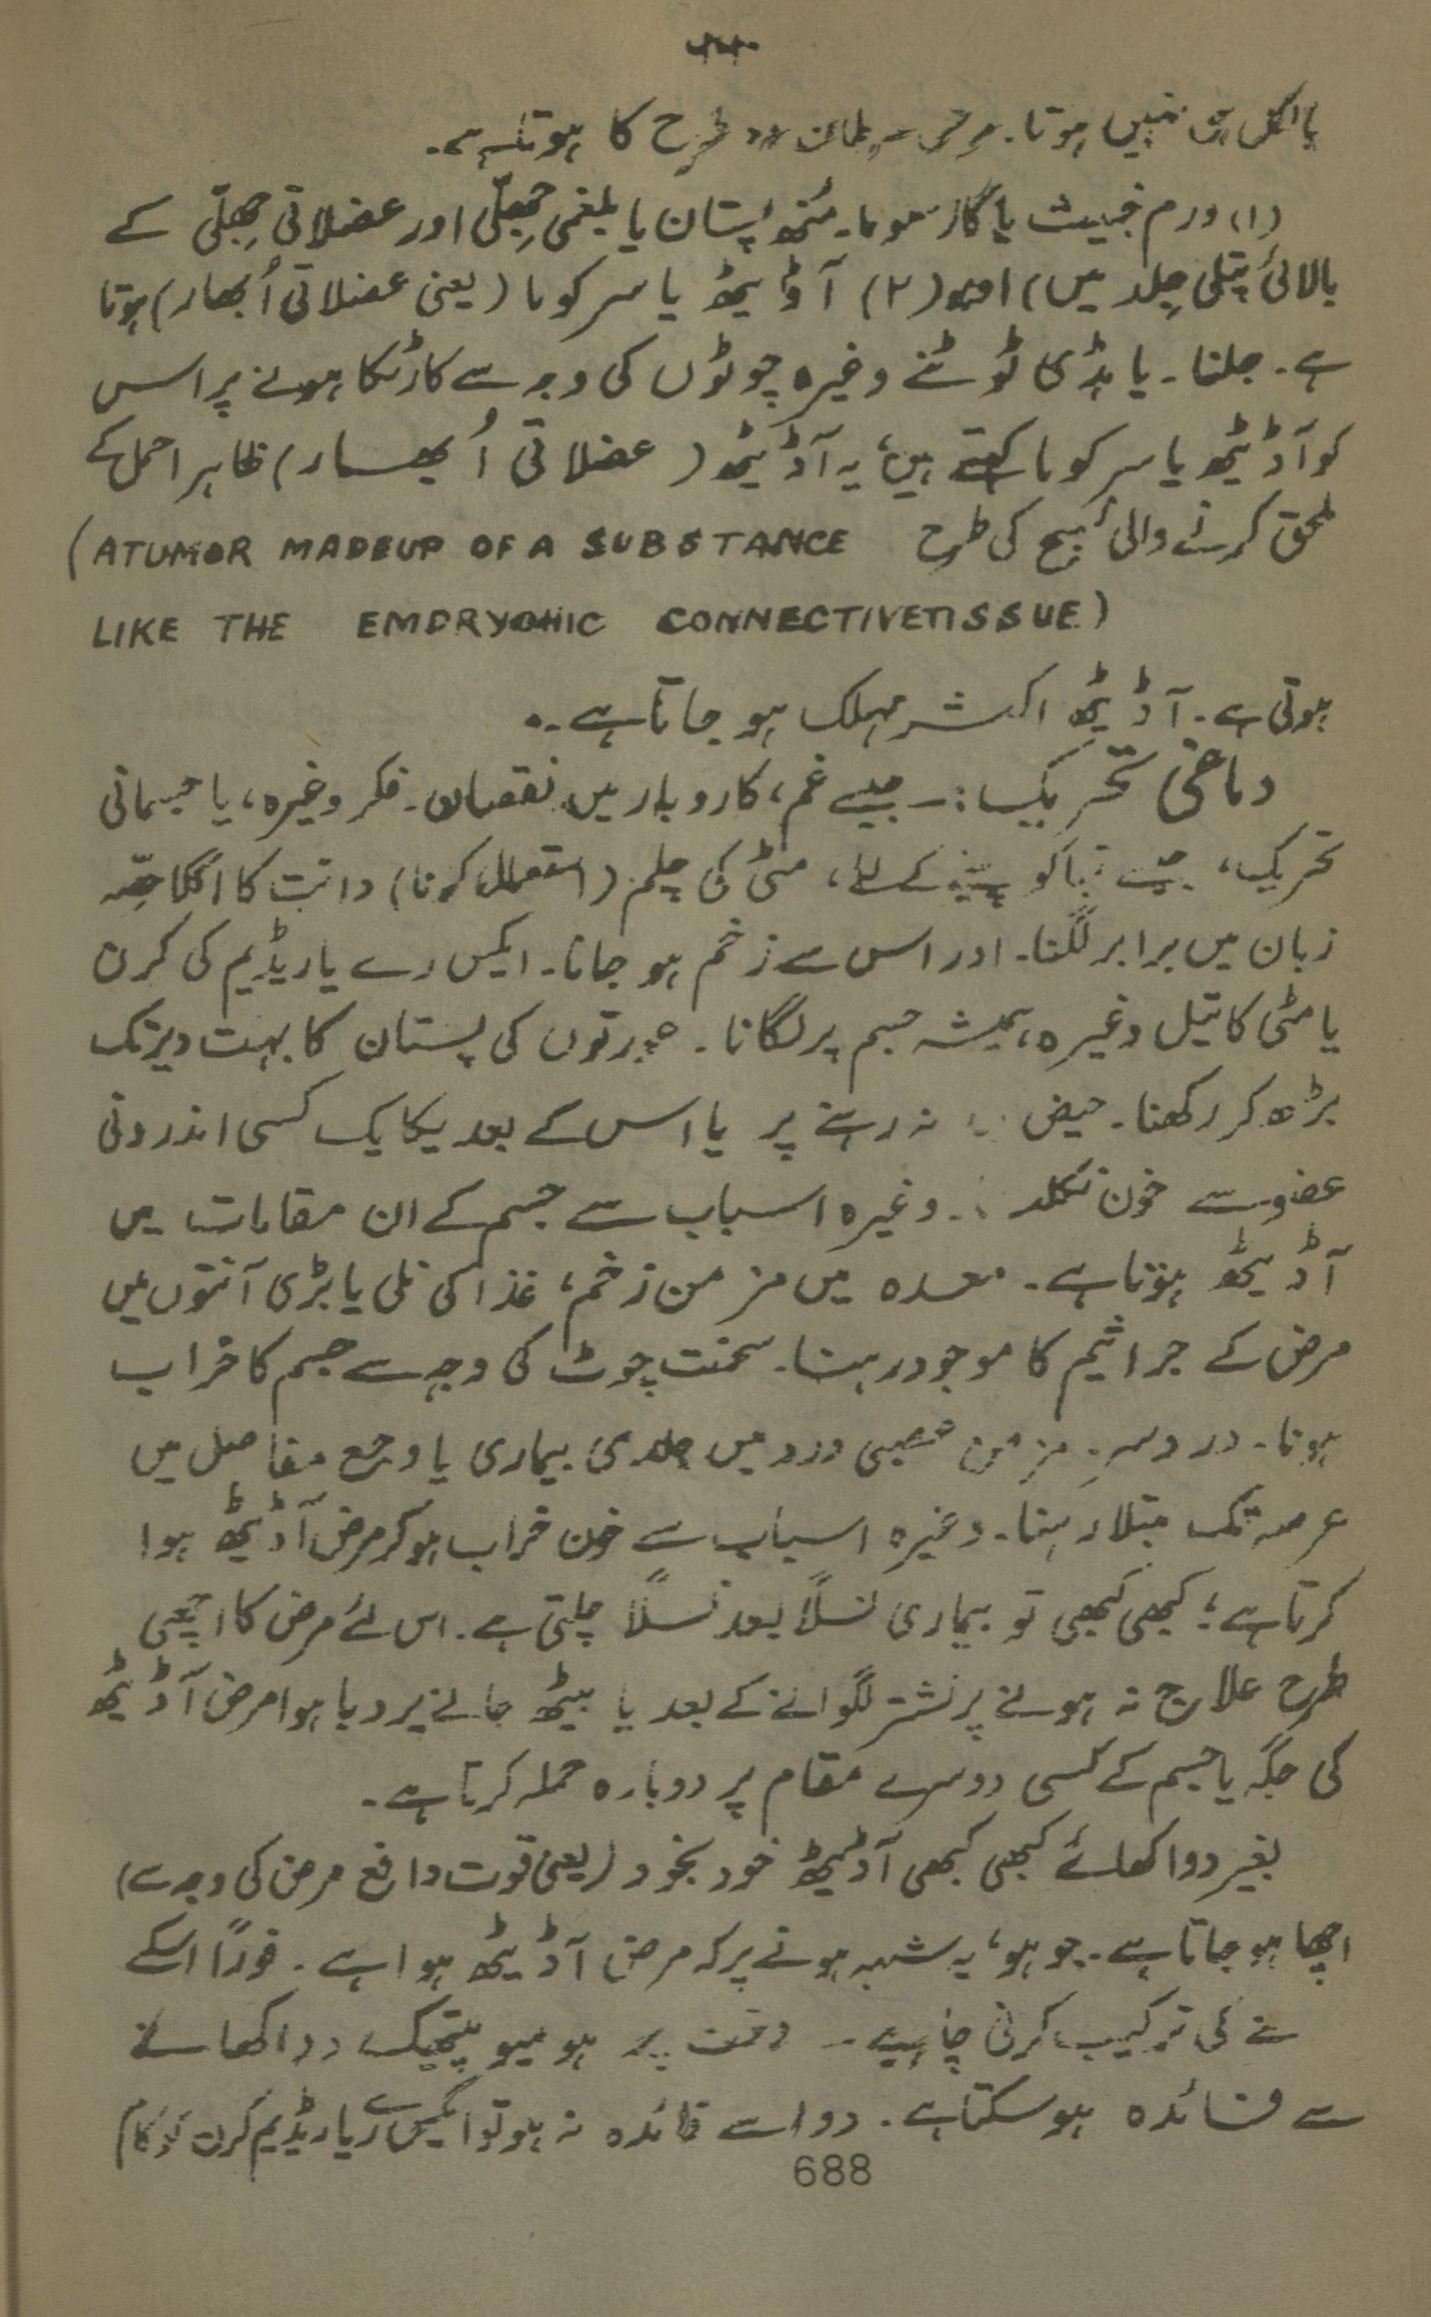 بالکل ہی نہیں ہوتا۔ مرض سرطان دو طرح کا ہوتا ہے۔
(۱) ورم خبیث یا کارسوما۔ مُنھ پستان یا بلغمی جِھلّی اور عضلاتی جِھلّی کے
بالائی پتلی جِلد میں) اور (۲) آڈیٹھ یا سرکوما (یعنی عضلاتی اُبھار) ہوتا
ہے۔ جلنا۔ یا ہڈی کا ٹوٹنے وغیرہ چوٹوں کی وجہ سے کارٹکا ہونے پر اس
کو آڈیٹھ یا سرکوما کہتے ہیں، یہ آڈیٹھ (عضلاتی اُبھار) ظاہرا حمل کے
ملحق کرنے والی نسیج کی طرح (ATUMOR MADEUP OF A SUBSTANCE
LIKE THE EMDRYONIC CONNECTIVETISSUE)
ہوتی ہے۔ آڈیٹھ اکثر مہلک ہو جاتا ہے۔
دماغی تحریک:۔ جیسے غم، کاروبار میں نقصان۔ فکر وغیرہ، یا جسمانی
تحریک، جیسے تمباکو پینے کے لئے، مٹی کی چلم (استعمال کرنا) دانت کا اگلا حِصّہ
زبان میں برابر لگنا۔ اور اس سے زخم ہو جانا۔ ایکس رے یا ریڈیم کی کرن
یا مٹی کا تیل وغیرہ، ہمیشہ جسم پر لگانا۔ عورتوں کی پستان کا بہت دیر تک
بڑھ کر رکھنا۔ حیض نہ رہنے پر یا اس کے بعد یکایک کسی اندرونی
عضو سے خون نکلنا وغیرہ اسباب سے جسم کے ان مقامات میں
آڈیٹھ ہوتا ہے۔ معدہ میں مزمن زخم، غذا کی نلی یا بڑی آنتوں میں
مرض کے جراثیم کا موجود رہنا۔ سخت چوٹ کی وجہ سے جسم کا خراب
ہونا۔ درد سر۔ مزمن عصبی درد میں جلدی بیماری یا وجع مفاصل میں
عرصہ تک مبتلا رہنا۔ وغیرہ اسباب سے خون خراب ہو کر مرض آڈیٹھ ہوا
کرتا ہے؛ کبھی کبھی تو بیماری نسلاً بعد نسلاً چلتی ہے۔ اس لئے مرض کا اچھی
طرح علاج نہ ہونے پر نشتر لگوانے کے بعد یا بیٹھ جانے پر دبا ہوا مرض آڈیٹھ
کی جگہ یا جسم کے کسی دوسرے مقام پر دوبارہ حملہ کرتا ہے۔
بغیر دوا کھائے کبھی کبھی آڈیٹھ خود بخود (یعنی قوت دافع مرض کی وجہ سے)
اچھا ہو جاتا ہے۔ جو ہو، یہ شبہ ہونے پر کہ مرض آڈیٹھ ہوا ہے۔ فوراً اسکے
نے کی ترکیب کرنی چاہیے۔ وقت پر ہومیوپیتھک دوا کھانے
سے فائدہ ہو سکتا ہے۔ دوا سے فائدہ نہ ہو تو ایکس رے یا ریڈیم کرن کو کام
688